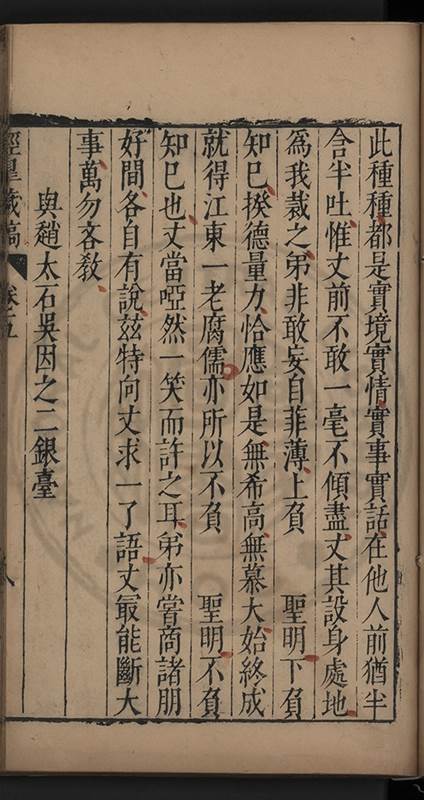 此種種都是實境實情實事實話在他人前猶半
含半吐惟丈前不敢一毫不傾盡丈其設身處地
爲我裁之弟非敢妄自菲薄上負　聖明下負
知己揆德量力恰應如是無希高無慕大始終成
就得江東一老腐儒亦所以不負　聖明不負
知已也丈當啞然一笑而許之耳弟亦嘗商諸朋
好間各自有說玆特向丈求一了語丈最能斷大
事萬勿吝敎
與趙太石吳因之二銀臺
涇皐藏稿　卷之五